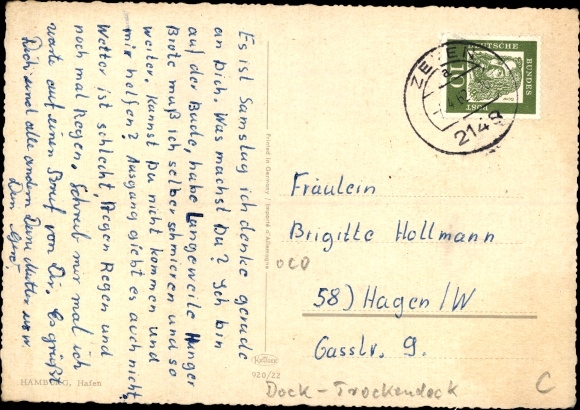 Es ist Samstag ich denke gerade
an Dich. Was machst Du? Ich bin
auf der Bude, habe Langeweile Hunger
Brote muß ich selber schmieren und so
weiter. Kannst Du nicht kommen und
mir helfen? Ausgang giebt es auch nicht,
Wetter ist schlecht Regen Regen und
noch mal Regen. Schreib mir mal ich
warte auf einen Brief von Dir. Es grüßt
Dich und alle andern Dein
Dein
HAMBURG, Hafen
Printed in Germany / Imprimé d'Allemagne
Krüger
920/22
ZEVEN
2149
DEUTSCHE
BUNDES
POST
10
Fräulein
Brigitte Hollmann
58) Hagen/W
Gasstr. 9.
Dock - Trockendock
C